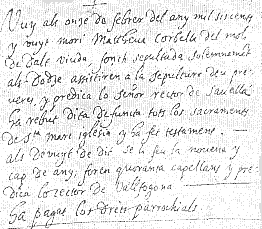 Vuy als onse de febrer del any mil siscents
y vuyt mori Matheua Corbella del mol
de Dalt viuda, fonch sepultada solemnemēt
als dotse assistiren a la sepultura deu pre
veres, y predica lo señor rector de Sauella
ha rebut dita defuncta tots los sacraments
de sta mare iglesia y ha fet testament.
als devuyt de dit se li feu la novena y
cap de any; foren quoranta capellans y pre
dica lo rector de Vallfogona
ha pagat los drets parrochials.